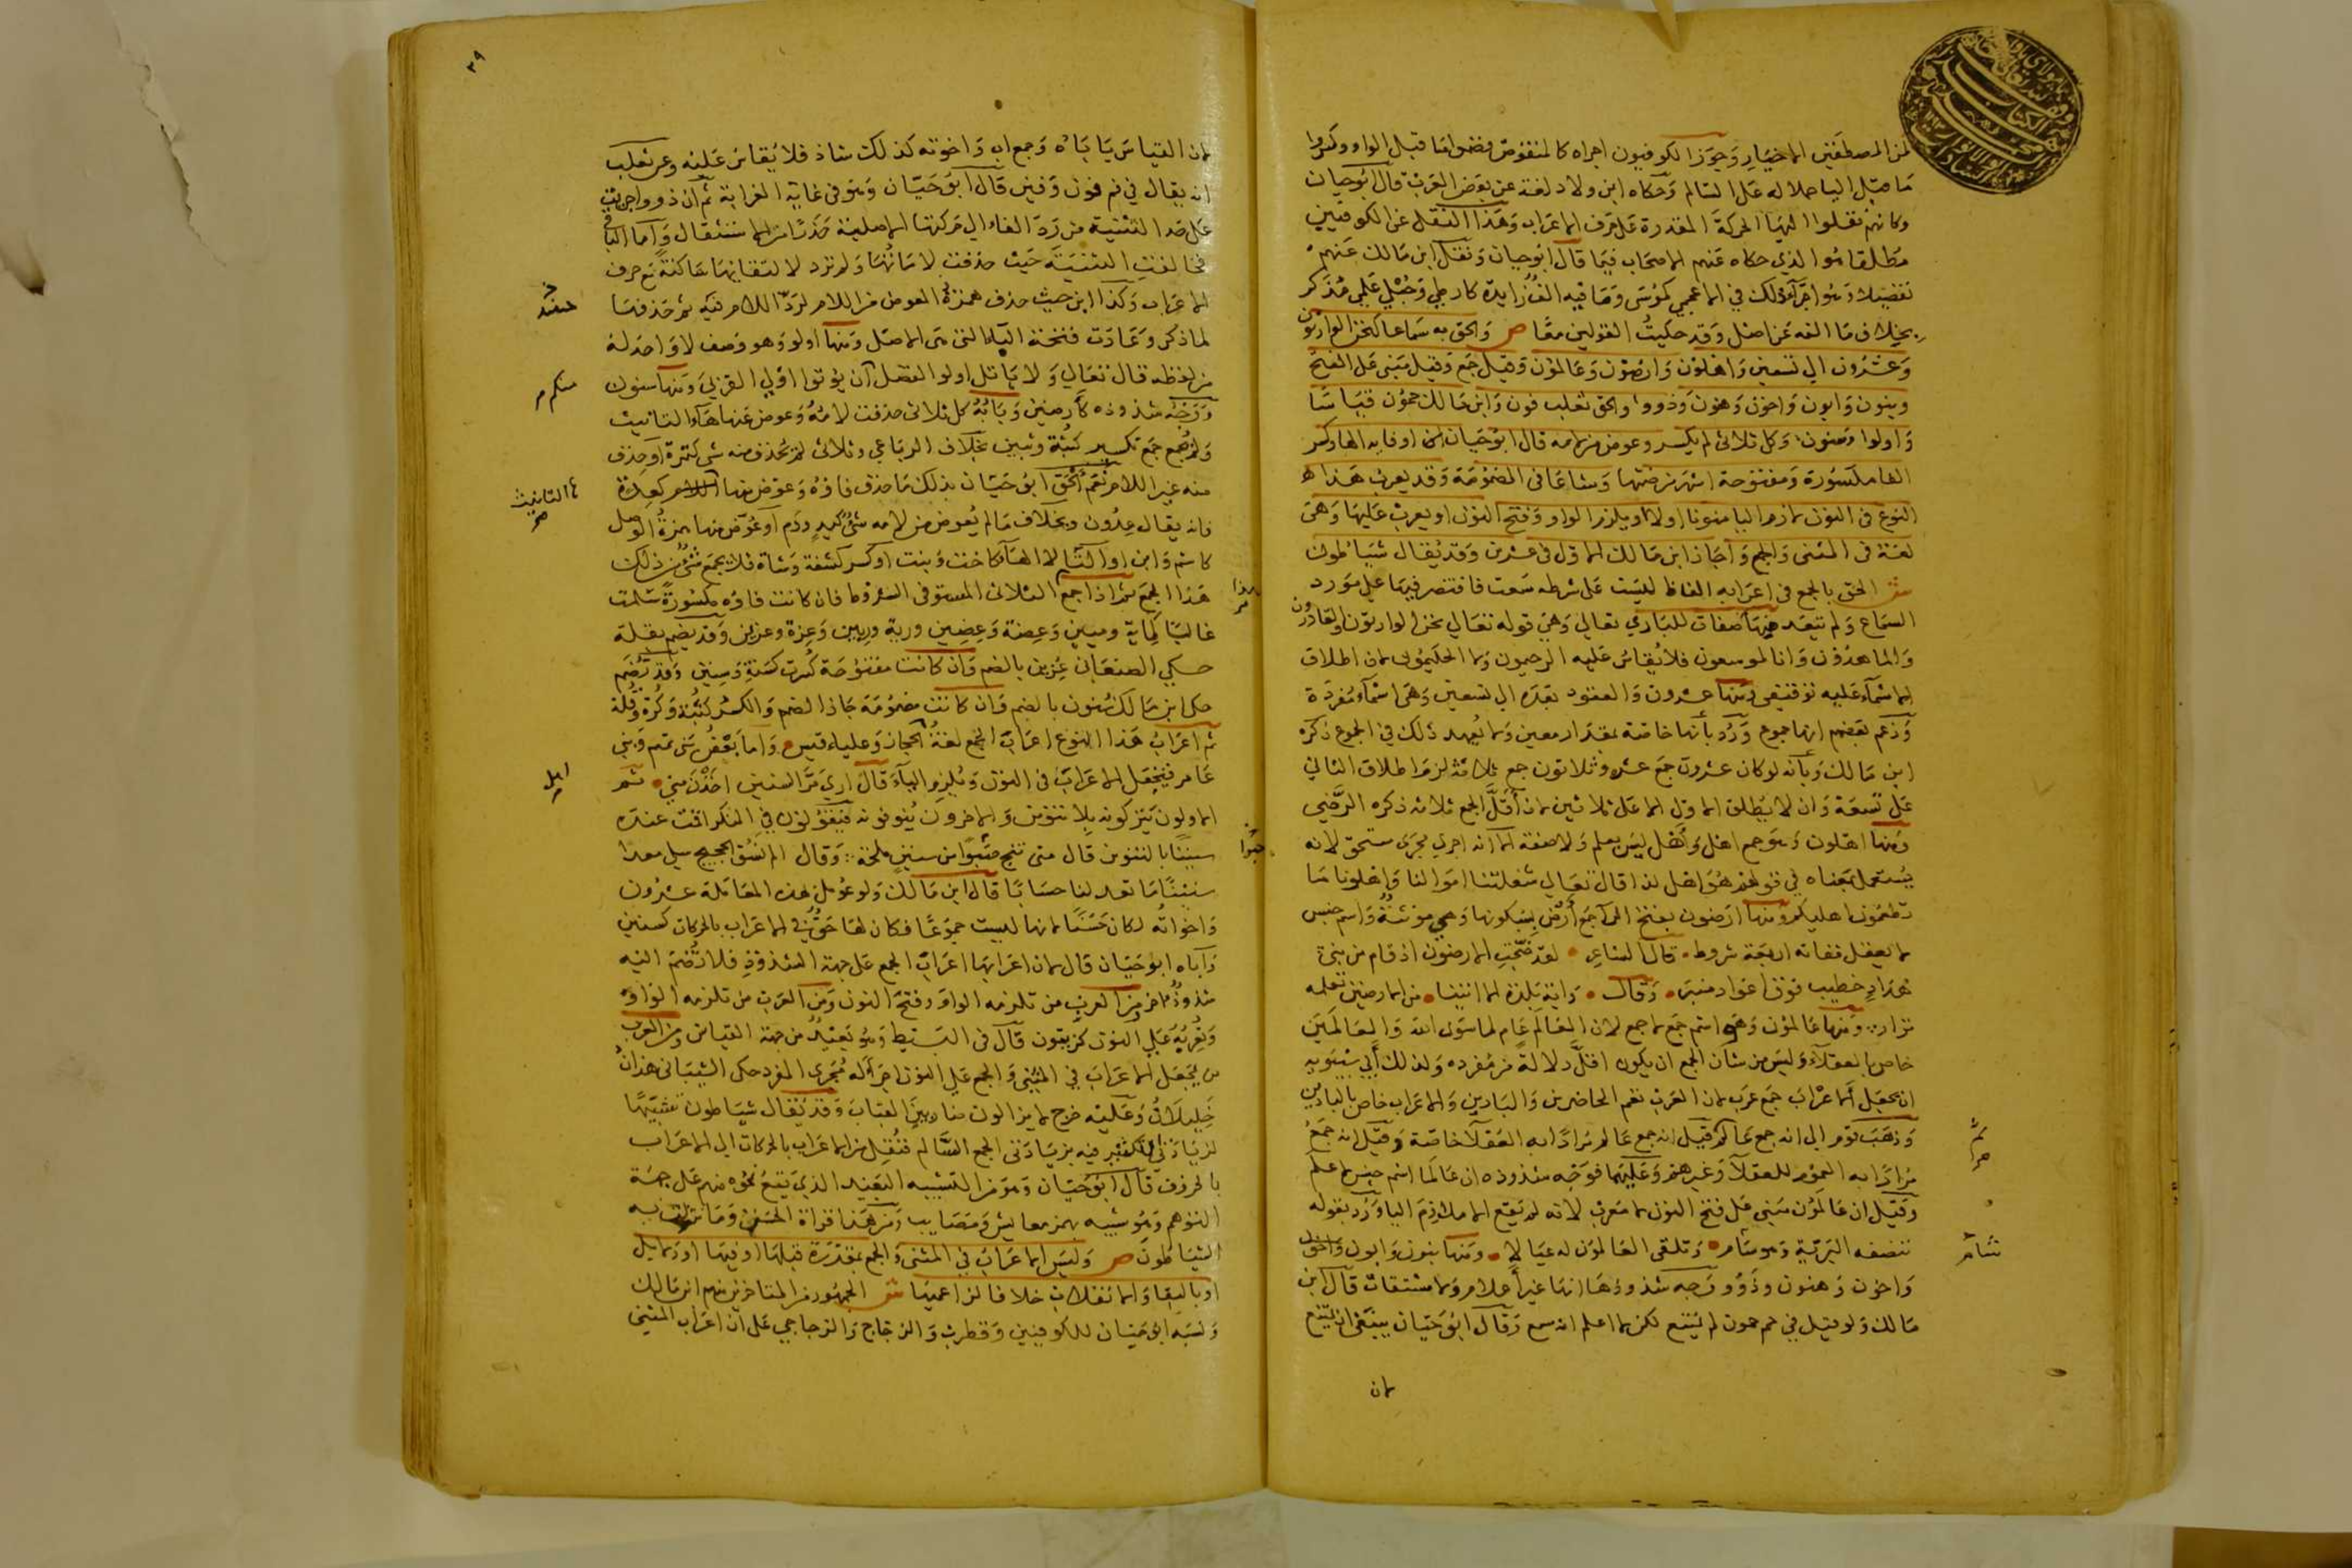 لمن المصطفين الاخيار وجوز الكوفيون اجراه كالمنقوص فضموا ما قبل الواو وكسروا
ما قبل اليا حملا له على السالم وحكاه ابن ولاد لغة عن بعض العرب قال ابو حيان
وكانهم نقلوا اليها الحركة المقدرة على حرف الاعراب وهذا النقل عن الكوفيين
مطلقا هو الذي حكاه عنهم الاصحاب فيما قال ابو حيان ونقل ابن مالك عنهم
تفصيلا وهو اجراء ذلك في الاعجمي كموسى وما فيه الف زايدة كارطي وحبلى علمي مذكر
بخلاف ما الفه عن اصل وقد حكيت القولين معا ص والحق به سماعا كنحن الوارثون
وعشرون الى تسعين واهلون وارضون وعالمون وقيل جمع وقيل مبني على الفتح
وبنون وابون واخون وهنون وذوو والحق ثعلب فون وابن مالك حمون قياسا
واولوا وسنون وكل ثلاثي لم يكسر وعوض من لامه قال ابو حيان او فايه الها وكسر
الفا مكسورة ومفتوحة اشهر من ضمها وشاعا في المضمومة وقد يعرب هذا
النوع في النون لازم اليا منونا اولا او يلزم الواو وفتح النون او يعرب عليها وهي
لغة في المثنى والجمع واجاز ابن مالك الاول في عشرين وقد يقال شياطون
ش الحق بالجمع في اعرابه الفاظ ليست على شرطه سمعت فاقتصر فيها على مورد
السماع ولم تتعد منها صفات للباري تعالى وهي قوله تعالى نحن الوارثون والقادرون
والماهدون وانا لموسعون فلا يقاس عليه الرحيمون ولا الحكيمون لان اطلاق
الاسماء عليه توقيفي ومنها عشرون والعقود بعده الى تسعين وهي اسماء مفردة
وزعم بعضهم انها جموع ورد بانها خاصة بمقدار معين ولا يعهد ذلك في الجموع ذكره
ابن مالك وبانه لو كان عشرون جمع عشر وثلاثون جمع ثلاثة لزم اطلاق الثاني
على تسعة وان لا يطلق الاول الا على ثلاثين لان اقل الجمع ثلاثه ذكره الرضي
ومنها اهلون وهو جمع اهل واهل ليس بعلم ولا صفة الا انه اجري مجرى مستحق لانه
يستعمل بمعناه في قولهم هو اهل لذا قال تعالى شغلتنا اموالنا واهلونا ما
تطعمون اهليكم ومنها ارضون بفتح الراء جمع ارض بسكونها وهي مؤنثة واسم جنس
لا يعقل ففاته اربعة شروط قال الشاعر لقد ضجت الارضون اذ قام من بني
هداد خطيب فوق اعواد منبر وقال وايّة بلدة الا اتينا من الارضين تعلمه
نزار ومنها عالمون وهو اسم جمع لا جمع لان العالم عام لما سوى الله والعالمين
خاص بالعقلاء وليس من شان الجمع ان يكون اقل دلالة من مفرده ولذلك ابى سيبويه
ان يجعل الاعراب جمع عرب لان العرب تعم الحاضرين والبادين والاعراب خاص بالبادين
وذهب قوم الى انه جمع عالم ثم قيل انه جمع عالم مرادا به العقلا خاصة وقيل انه جمع
مرادا به العموم للعقلاء وغيرهم وعليهما فوجه شذوذه ان عالما اسم جنس لا علم
وقيل ان عالمون مبني على فتح النون لا معرب لانه لم يقع الا ملازم اليا ورد بقوله
تنصفه البرية وهو سام وتلقى العالمون له عيالا ومنها بنون وابون واخون
واخون وهنون وذوو ووجه شذوذها انها غير اعلام ولا مشتقات قال ابن
مالك ولو قيل في حم حمون لم يمتنع لكن لا اعلم انه سمع وقال ابو حيان ينبغي ان يمتنع
لان
ثم
شام
٣٩
لان القياس يا باه وجمع اب واخوته كذلك شاذ فلا يقاس عليه وعن ثعلب
انه يقال في فم فون وفين قال ابو حيان وهو في غاية الغرابة ثم ان ذوو اجريت
على حد التثنية من رد الفاء الى حركتها الاصلية حذرا من الاستثقال واما الباقي
فخالفت التثنية حيث حذفت لاماتها ولم ترد لالتقائها ساكنة مع حرف
الاعراب وكذا ابن حيث حذف همزة العوض من اللام لرد اللام فيه ثم حذفها
لما ذكر وعادت فتحة الباء التي هي الاصل ومنها اولو وهو وصف لا واحد له
من لفظه قال تعالى ولا ياتل اولوا الفضل منكم ان يؤتوا اولي القربى ومنها سنون
ووجه شذوذه كارضين وبابه كل ثلاثي حذفت لامه وعوض عنها هاء التانيث
ولم يجمع جمع تكسير كثبة وثبين بخلاف الرباعي وثلاثي لم يحذف منه شي كتمرة او حذف
منه غير اللام نعم الحق ابو حيان بذلك ما حذف فاؤه وعوض منها كعدة
فانه يقال عدون وبخلاف ما لم يعوض من لامه شئ كيد ودم او عوض منها همزة الوصل
كاسم وابن او التاء لا الهاء كاخت وبنت او كسر كشفة وشاة فلا يجمع شئ من ذلك
هذا الجمع ثم اذا جمع الثلاثي المستوفى الشروط فان كانت فاؤه مكسورة سلمت
غالبا كماية ومبين وعضة وعضين ورية وريين وعزة وعزين وقد يضم بقلة
حكي الصنعاني عزين بالضم وان كانت مفتوحة كسرت كسنة وسنين وقد تضم
حكى ابن مالك سنون بالضم وان كانت مضمومة جاز الضم والكسر كثبة وكرة وقلة
ثم اعراب هذا النوع اعراب الجمع لغة الحجاز وعلياء قيس واما بعض بني تميم وبني
عامر فيجعل الاعراب في النون ويلزم الياء قال ارى مر السنين اخذن مني ثم
الاولون يتركونه بلا تنوين والاخرون ينونونه فيقولون في المنكر اقمت عنده
سنينا بالتنوين قال متى تنج حبوا من سنين ملحة وقال الم نسق الحجيج سلي معدا
سنينا ما تعد لنا حسابا قال ابن مالك ولو عومل بهذه المعاملة عشرون
واخواته لكان حسنا لانها ليست جموعا فكان لها حق في الاعراب بالحركات كسنين
واباه ابو حيان قال لان اعرابها اعراب الجمع على جهة الشذوذ فلا نضم اليه
شذوذا اخر ومن العرب من تلزمه الواو وفتح النون ومن العرب من تلزمه الواو
وتعربه على النون كزيتون قال في البسيط وهو بعيد من جهة القياس ومن العرب
من يجعل الاعراب في المثنى والجمع على النون اجراء له مجرى المفرد حكى الشيباني هذان
خليلان وعليه خرج لا يزالون ضاربين القباب وقد يقال شياطون تشبيها
لزيادتي التكسير فيه بزيادتي الجمع السالم فنقل من الاعراب بالحركات الى الاعراب
بالحروف قال ابو حيان وهو من التشبيه البعيد الذي يقع نحوه منهم على جهة
التوهم وهو شبيه بهمز معايش ومصايب ومن هذا قراة الحسن وما تنزلت به
الشياطون ص وليس الاعراب في المثنى والجمع بمقدرة قبلها او فيها او دلايل
او بالبقا والانقلاب خلافا لزاعميها ش الجمهور من المتاخرين منهم ابن مالك
ونسبه ابو حيان للكوفيين وقطرب والزجاج والزجاجي على ان اعراب المثنى
منكم
ها التانيث
اهل